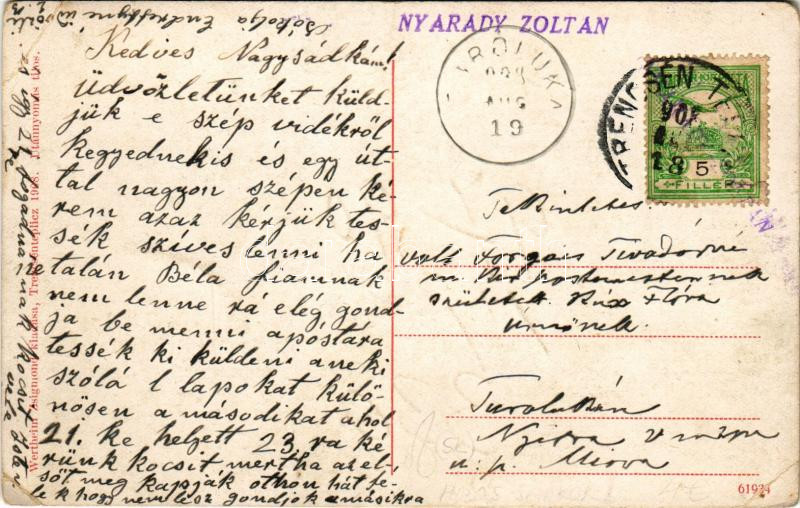 NYARADY ZOLTAN
Kedves Nagysádkám!
Üdvözletünket küld-
jük e szép vidékről
kegyednekis és egy út-
tal nagyon szépen ké-
rem azaz kérjük tes-
sék szíves lenni ha
netalán Béla fiamnak
nem lenne rá elég gond-
ja be menni a postára
tessék ki küldeni a neki
szóló l lapokat külö-
nösen a másodikat ahol
21. ke helyett 23. ra ké-
rünk kocsit mertha az el-
sőt meg kapják othon hát fé-
lek hogy nem lesz gondjok a másikra
Wertheim Zsigmond kiadása, Trencsénteplicz 1908. Utánnyomás tilos.
IBOLYKA
908
AUG
19
TRENCSÉN TEPLICZ
908
18
5
FILLER
Tekintetes
volt Forgács Tivadarné
m. kir. postamesternek
született Rix Flóra
urnőnek.
Turolukán
Nyitra v megye
u. p. Miova
61934